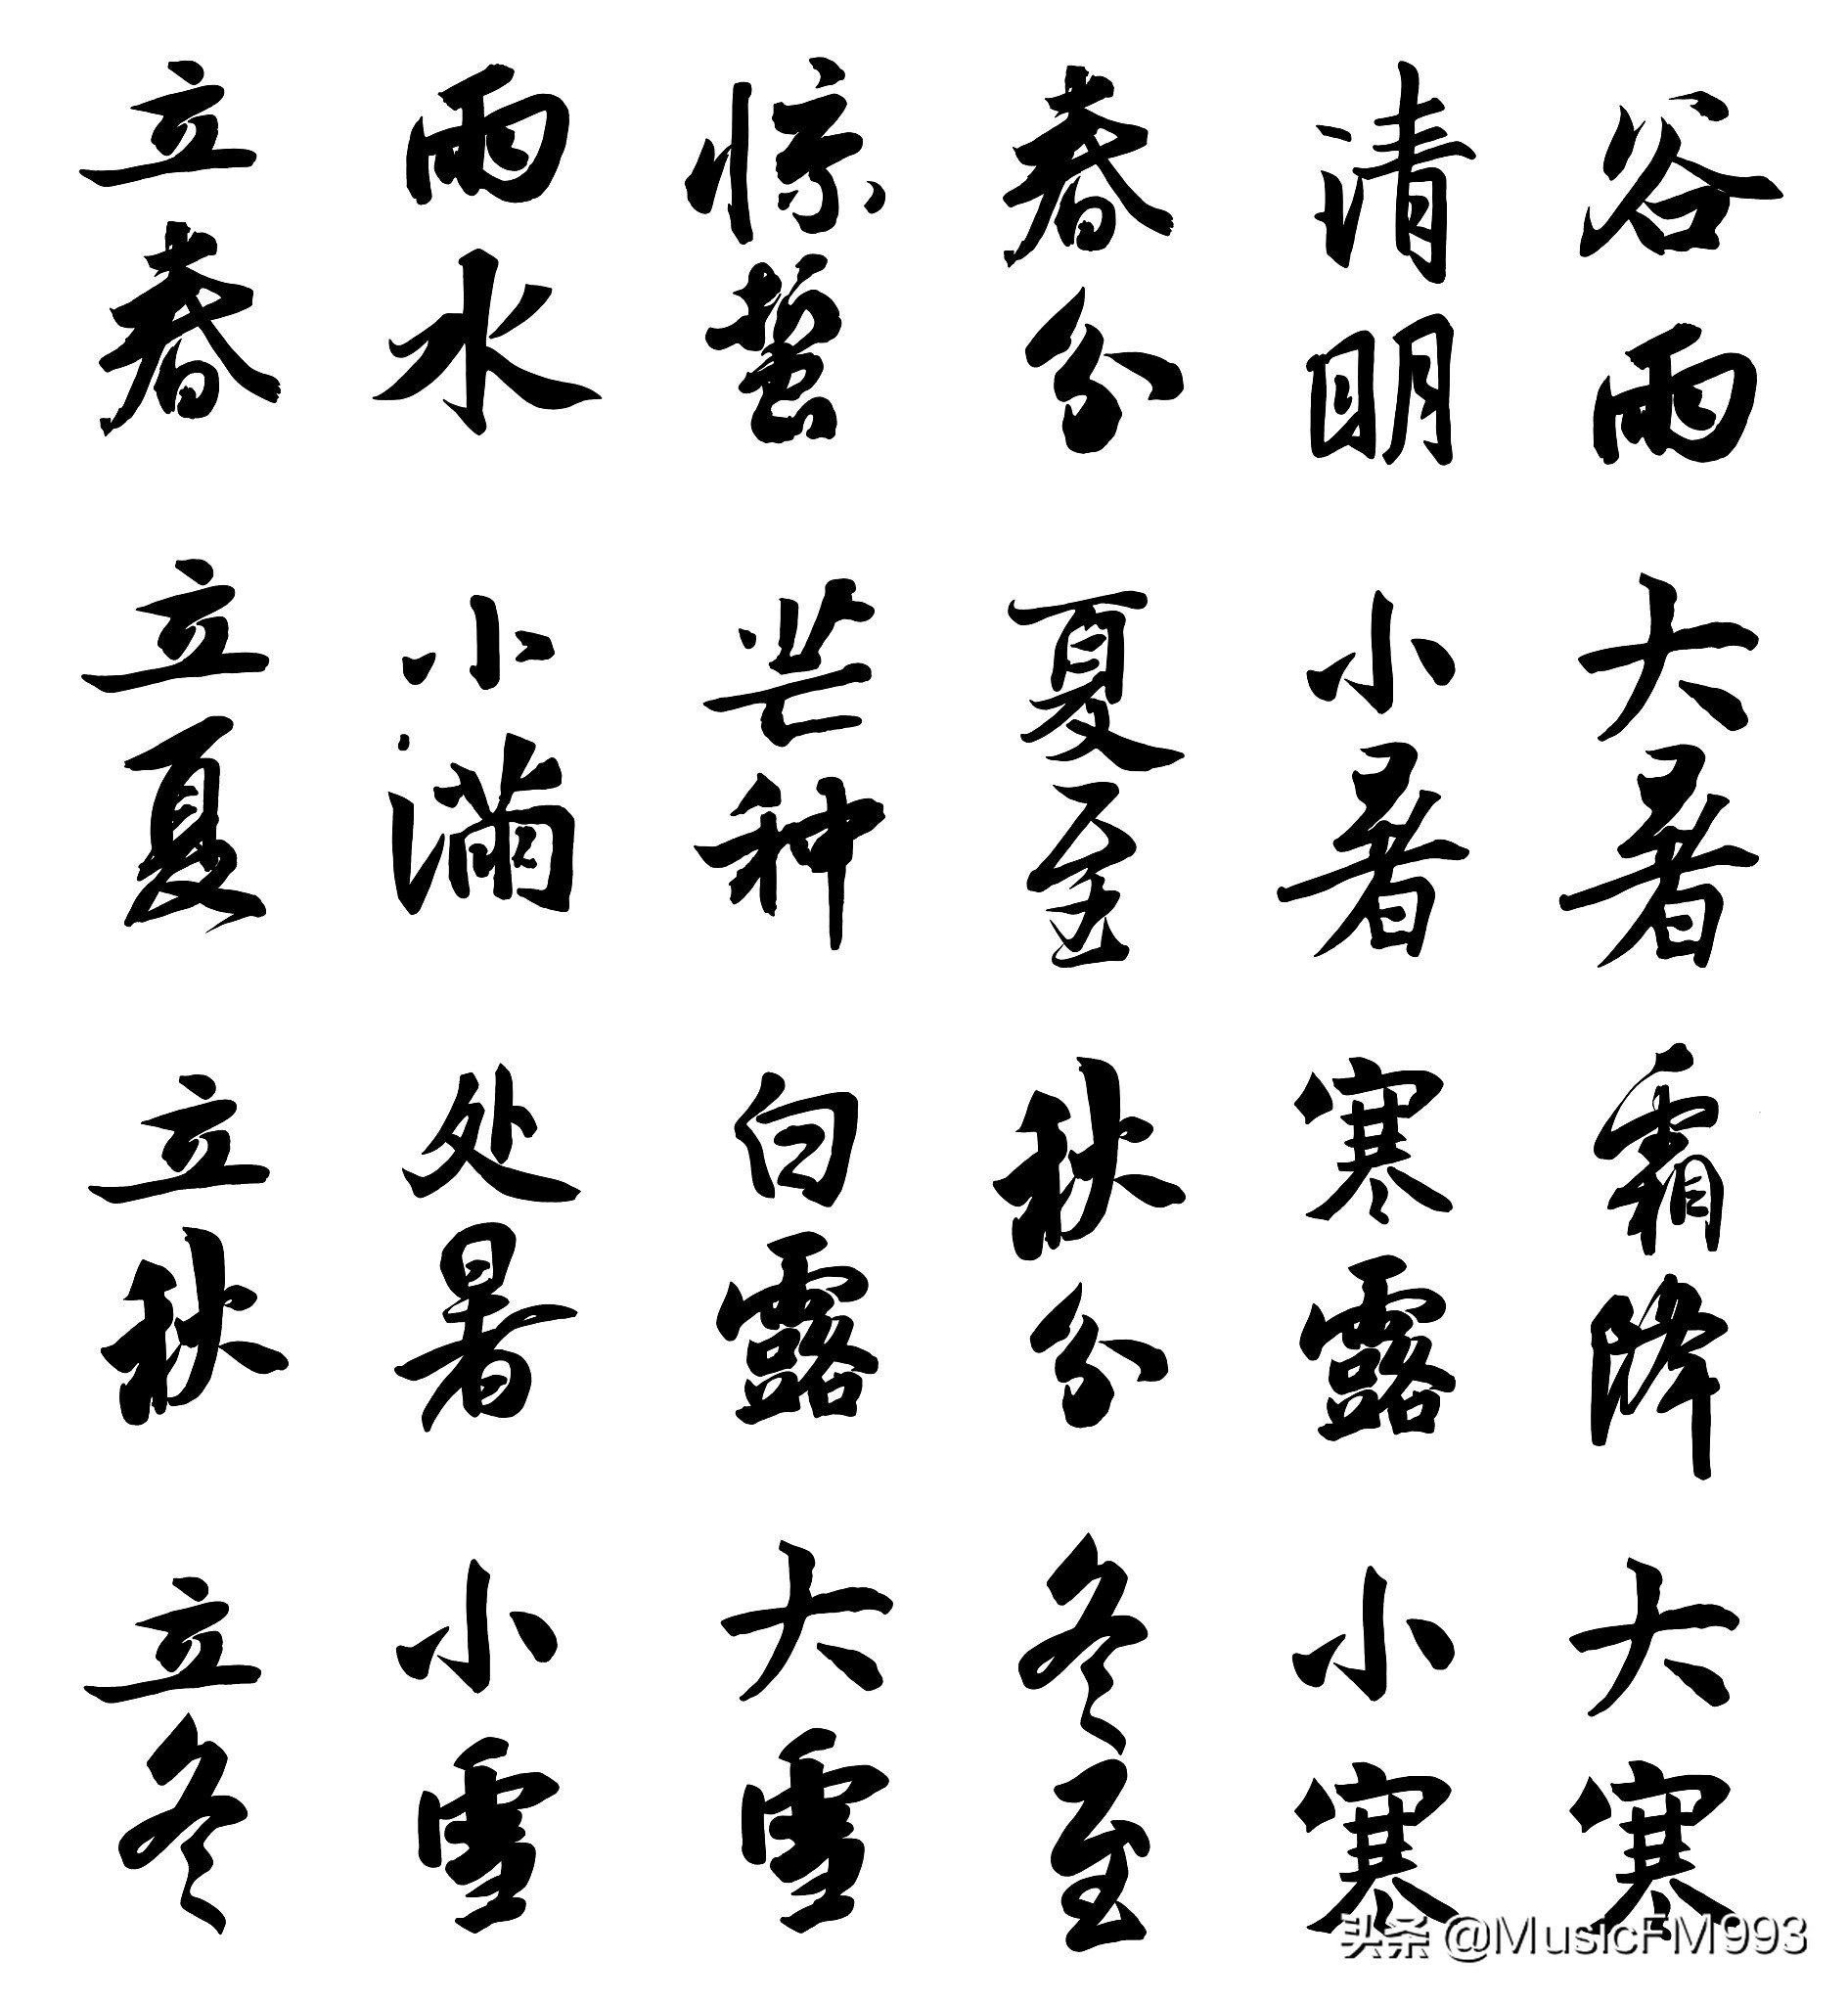 立春
雨水
惊蛰
春分
清明
谷雨
立夏
小满
芒种
夏至
小暑
大暑
立秋
处暑
白露
秋分
寒露
霜降
立冬
小雪
大雪
冬至
小寒
大寒
头条 @MusicFM993